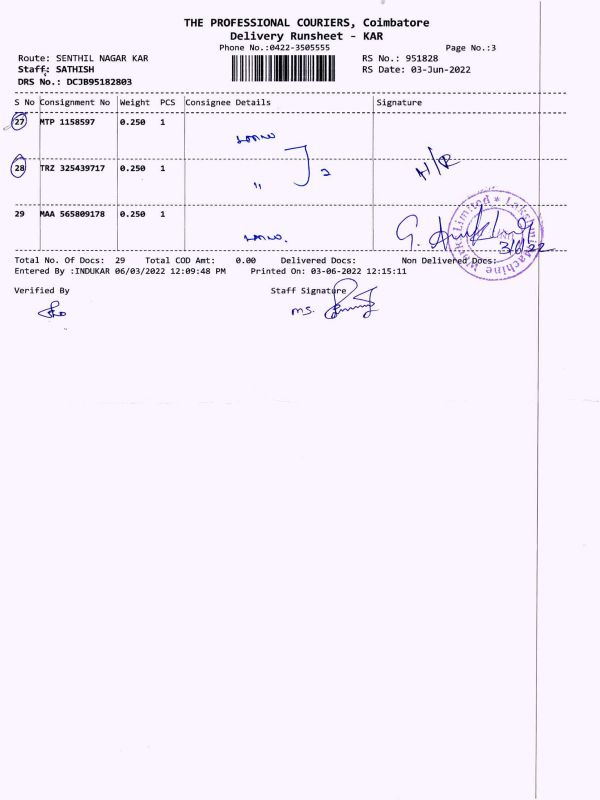 THE PROFESSIONAL COURIERS, Coimbatore
Delivery Runsheet - KAR
Phone No.:0422-3505555
Page No.:3
Route: SENTHIL NAGAR KAR
RS No.: 951828
Staff: SATHISH
RS Date: 03-Jun-2022
DRS No.: DCJB95182803
S No Consignment No Weight PCS Consignee Details Signature
27 MTP 1158597 0.250 1
28 TRZ 325439717 0.250 1
" 2
29 MAA 565809178 0.250 1
Limited * Lakshmi Machine Works
3/6/22
Total No. Of Docs: 29 Total COD Amt: 0.00 Delivered Docs: Non Delivered Docs:
Entered By :INDUKAR 06/03/2022 12:09:48 PM Printed On: 03-06-2022 12:15:11
Verified By Staff Signature
ms.